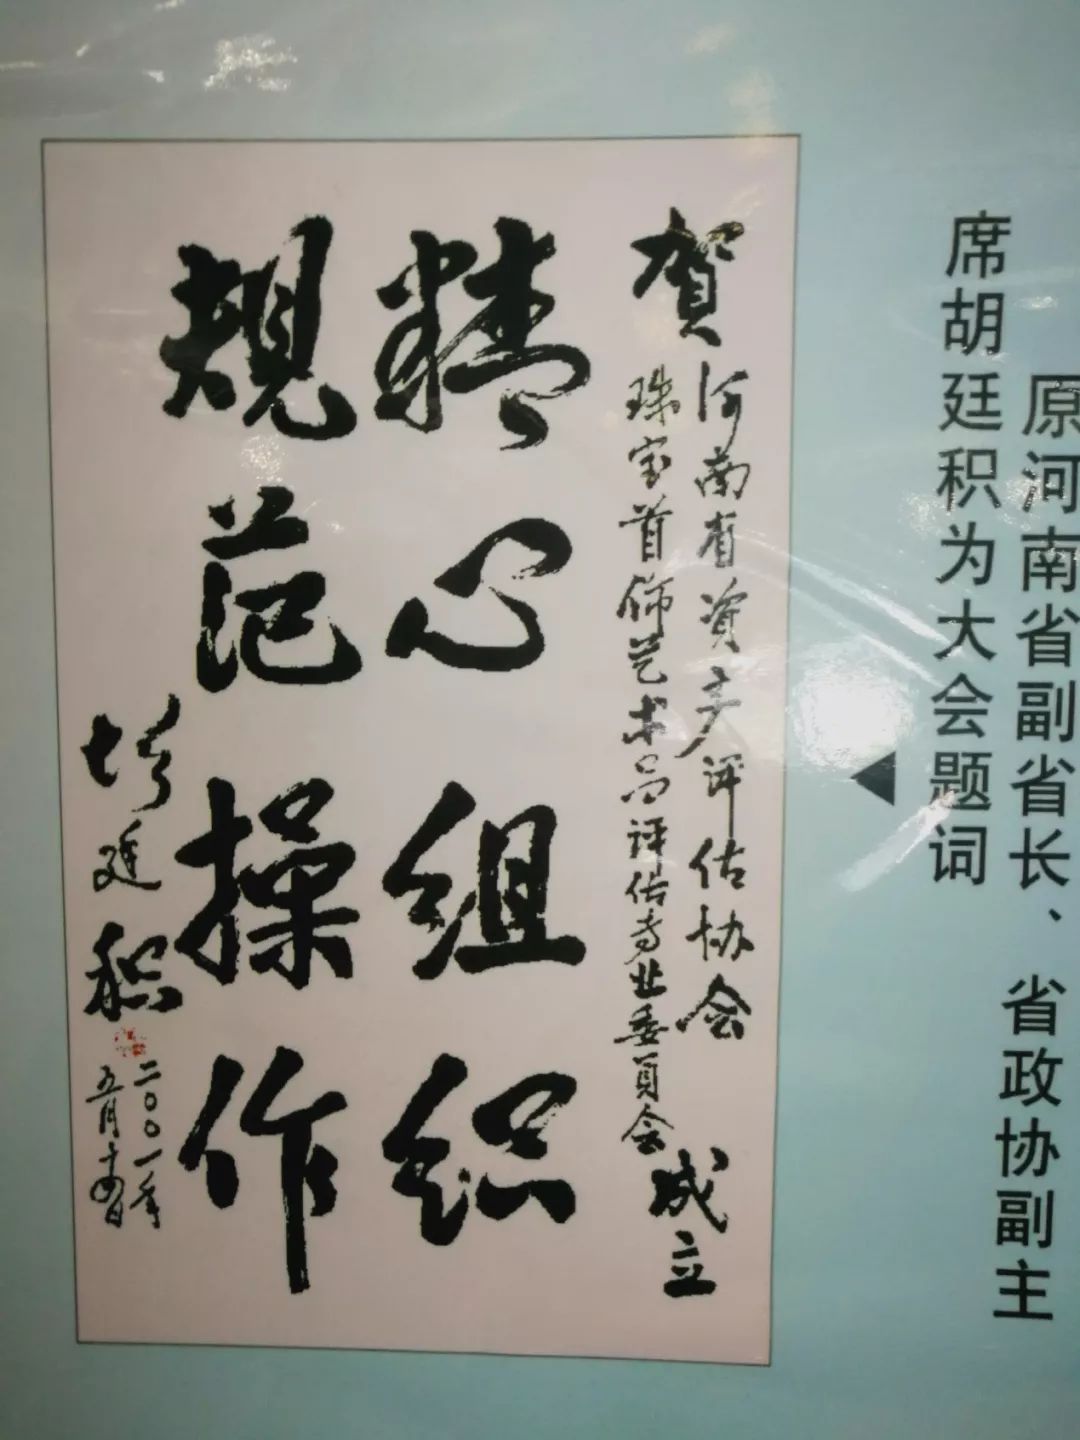 原河南省副省长、省政协副主
席胡廷积为大会题词
贺河南省资产评估协会
珠宝首饰艺术品评估专业委员会成立
精心组织
规范操作
胡廷积
二〇〇一年
五月十四日